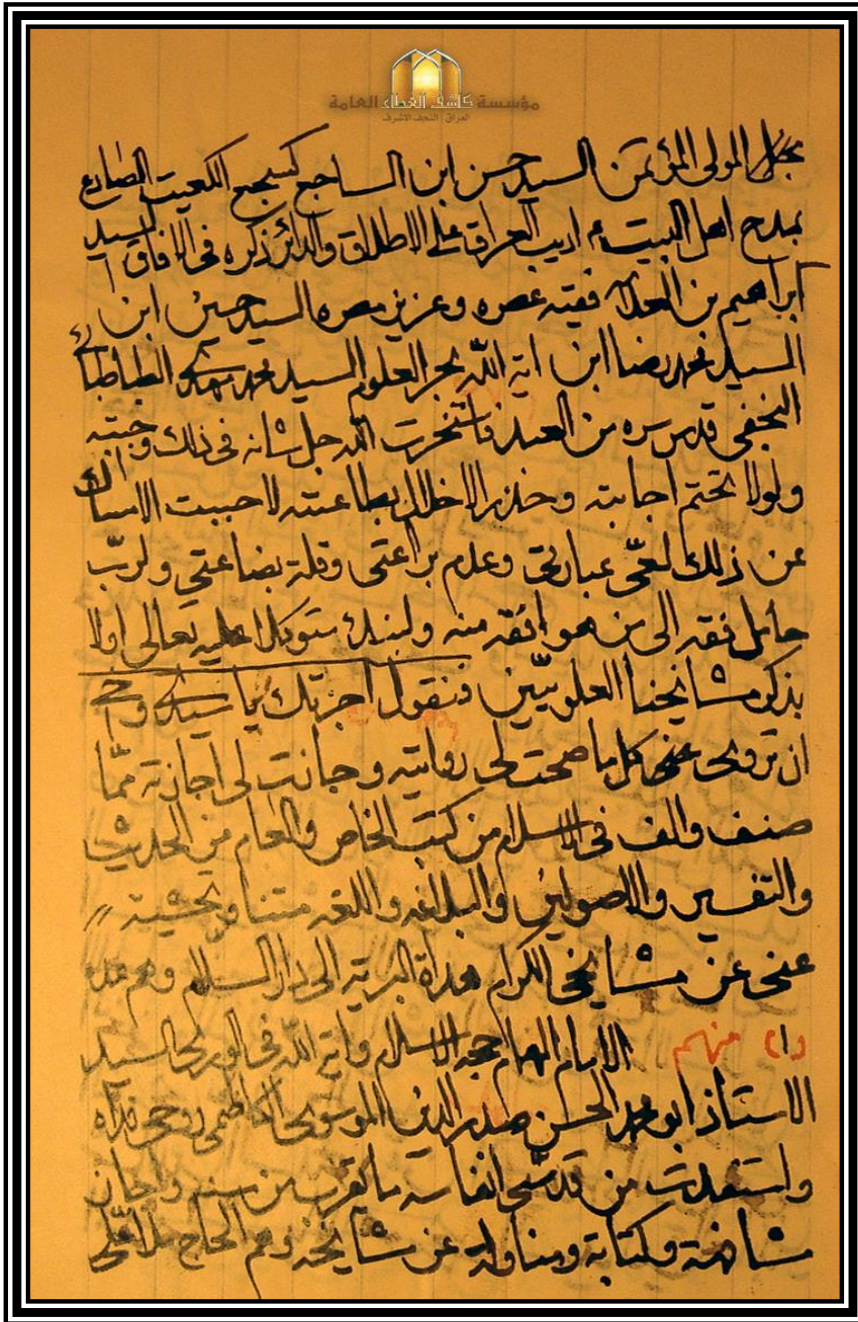 مؤسسة كاشف الغطاء العامة
العراق النجف الأشرف
المولى المؤتمن السيد حسن ابن الساجع كسجع الصادع
بمدح اهل البيت ع اديب العراق على الاطلاق والدائر ذكره في الافاق السيد
ابراهيم بن العلامة فقيه عصره وعزيز مصره السيد حسين ابن
السيد محمد رضا ابن اية الله بحر العلوم السيد محمد مهدي الطباطبائي
النجفي قدس سره من فاستخرت الله جل شانه في ذلك
ولولا تحتم اجابته وحذر الاخلال بطاعته لاحببت الامساك
عن ذلك لعي عبارتي وعدم براعتي وقلة بضاعتي ولرب
حامل فقه الى من هو افقه منه ولنبدء متوكلا عليه تعالى اولا
بذكر مشايخنا العلويين فنقول اجزتك يا سيدي
ان تروي عني كل ما صحت لي روايته وجازت لي اجازته مما
صنف والف في الاسلام من كتب الخاص والعام من الحديث
والتفسير والاصولين والبلاغه واللغه متنا وتحشية //
عني عن مشايخي الكرام هداة البرية الى دار السلام وهم عدة
(١) منهم الامام الهمام حجة الاسلام واية الله في الورى السيد
الاستاذ ابو محمد الحسن صدر الدين الموسوي الكاظمي روحي فداه
واستفدت من قدسي انفاسه ما يقرب من سنة واجاز
مشافهة وكتابة ومناولة عن مشايخه وهم الحاج ملا علي